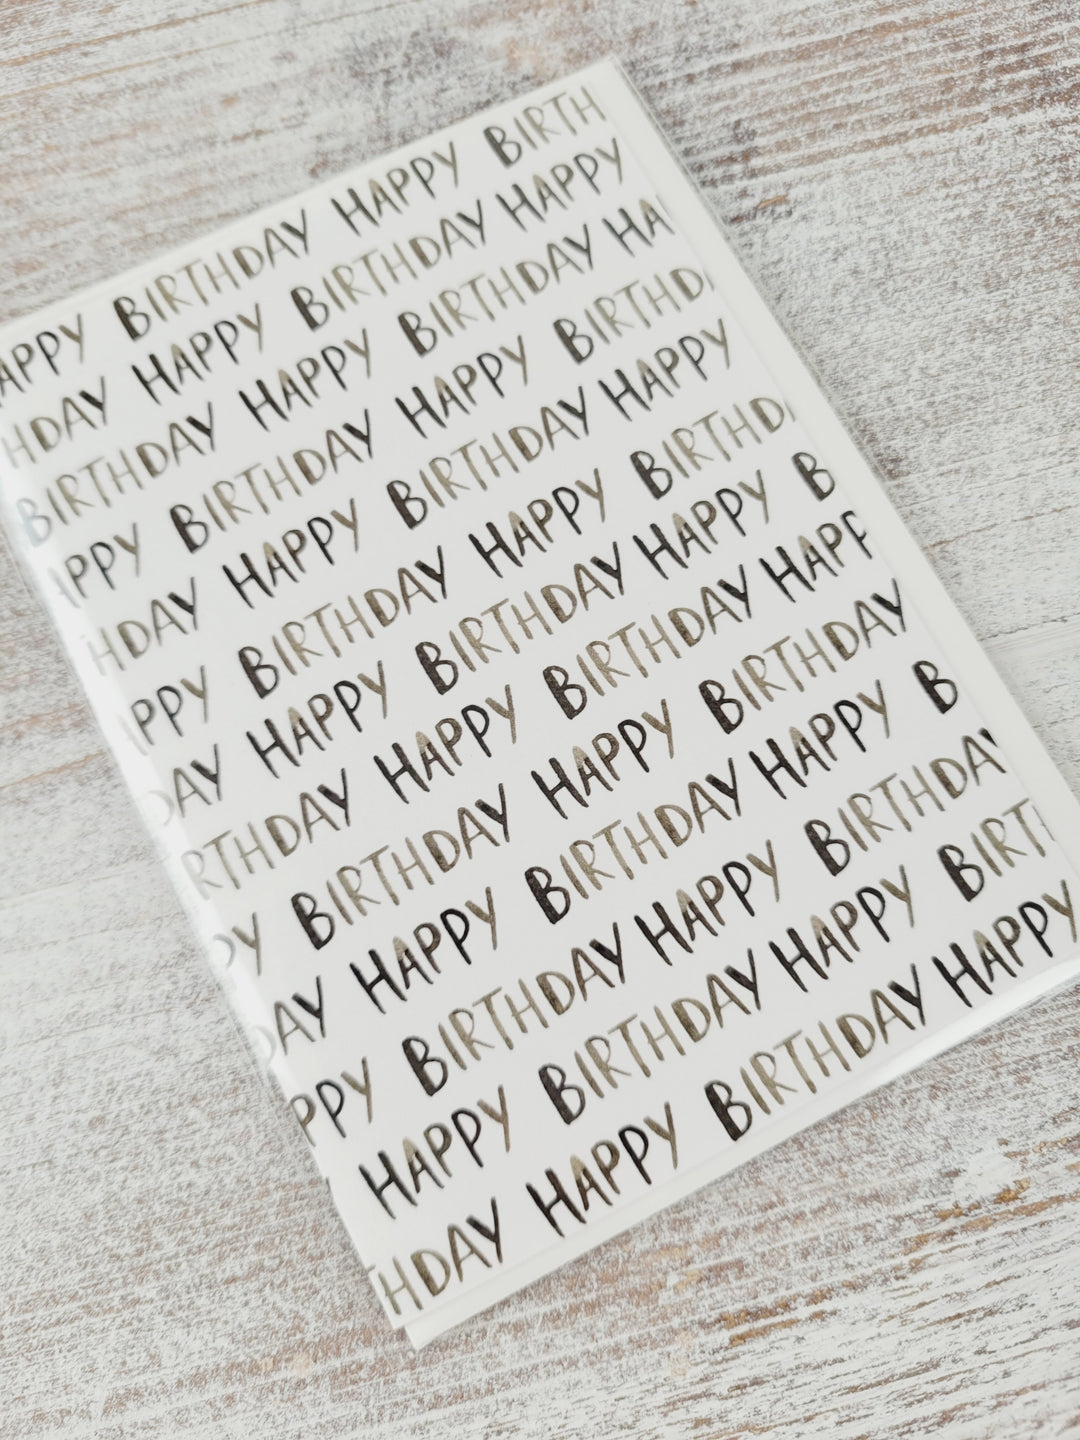 APPY BIRTHDAY HAPPY BIRTH
HDAY HAPPY BIRTHDAY HAPPY
BIRTHDAY HAPPY BIRTHDAY HA
APPY BIRTHDAY HAPPY BIRTHD
HDAY HAPPY BIRTHDAY HAPPY
APPY BIRTHDAY HAPPY BIRTHD
DAY HAPPY BIRTHDAY HAPPY B
RTHDAY HAPPY BIRTHDAY HAPP
PY BIRTHDAY HAPPY BIRTHDAY
DAY HAPPY BIRTHDAY HAPPY B
PPY BIRTHDAY HAPPY BIRTHDAY
HAPPY BIRTHDAY HAPPY BIRT
THDAY HAPPY BIRTHDAY HAPPY